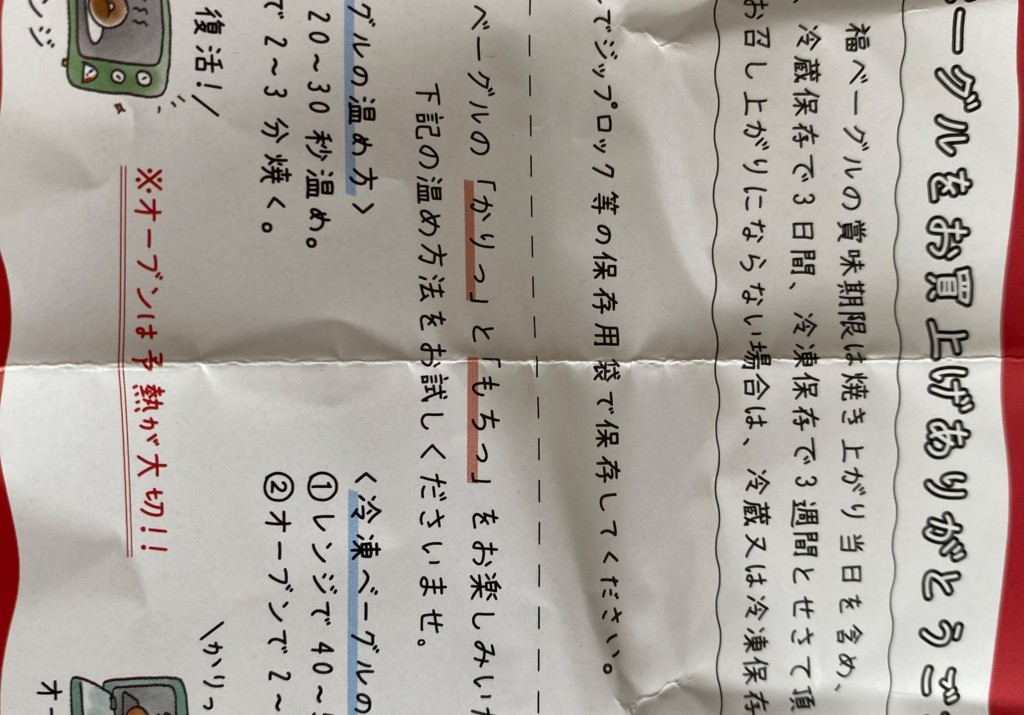 ーグルをお買上げありがとうご
福ベーグルの賞味期限は焼き上がり当日を含め、
冷蔵保存で3日間、冷凍保存で3週間とせさて頂
お召し上がりにならない場合は、冷蔵又は冷凍保存
でジップロック等の保存用袋で保存してください。
ベーグルの「かりっ」と「もちっ」をお楽しみいた
下記の温め方法をお試しくださいませ。
グルの温め方〉
20～30秒温め。
で2～3分焼く。
復活！
ンジ
※オーブンは予熱が大切！！
〈冷凍ベーグルの
①レンジで40～
②オーブンで2～
かりっ
オー